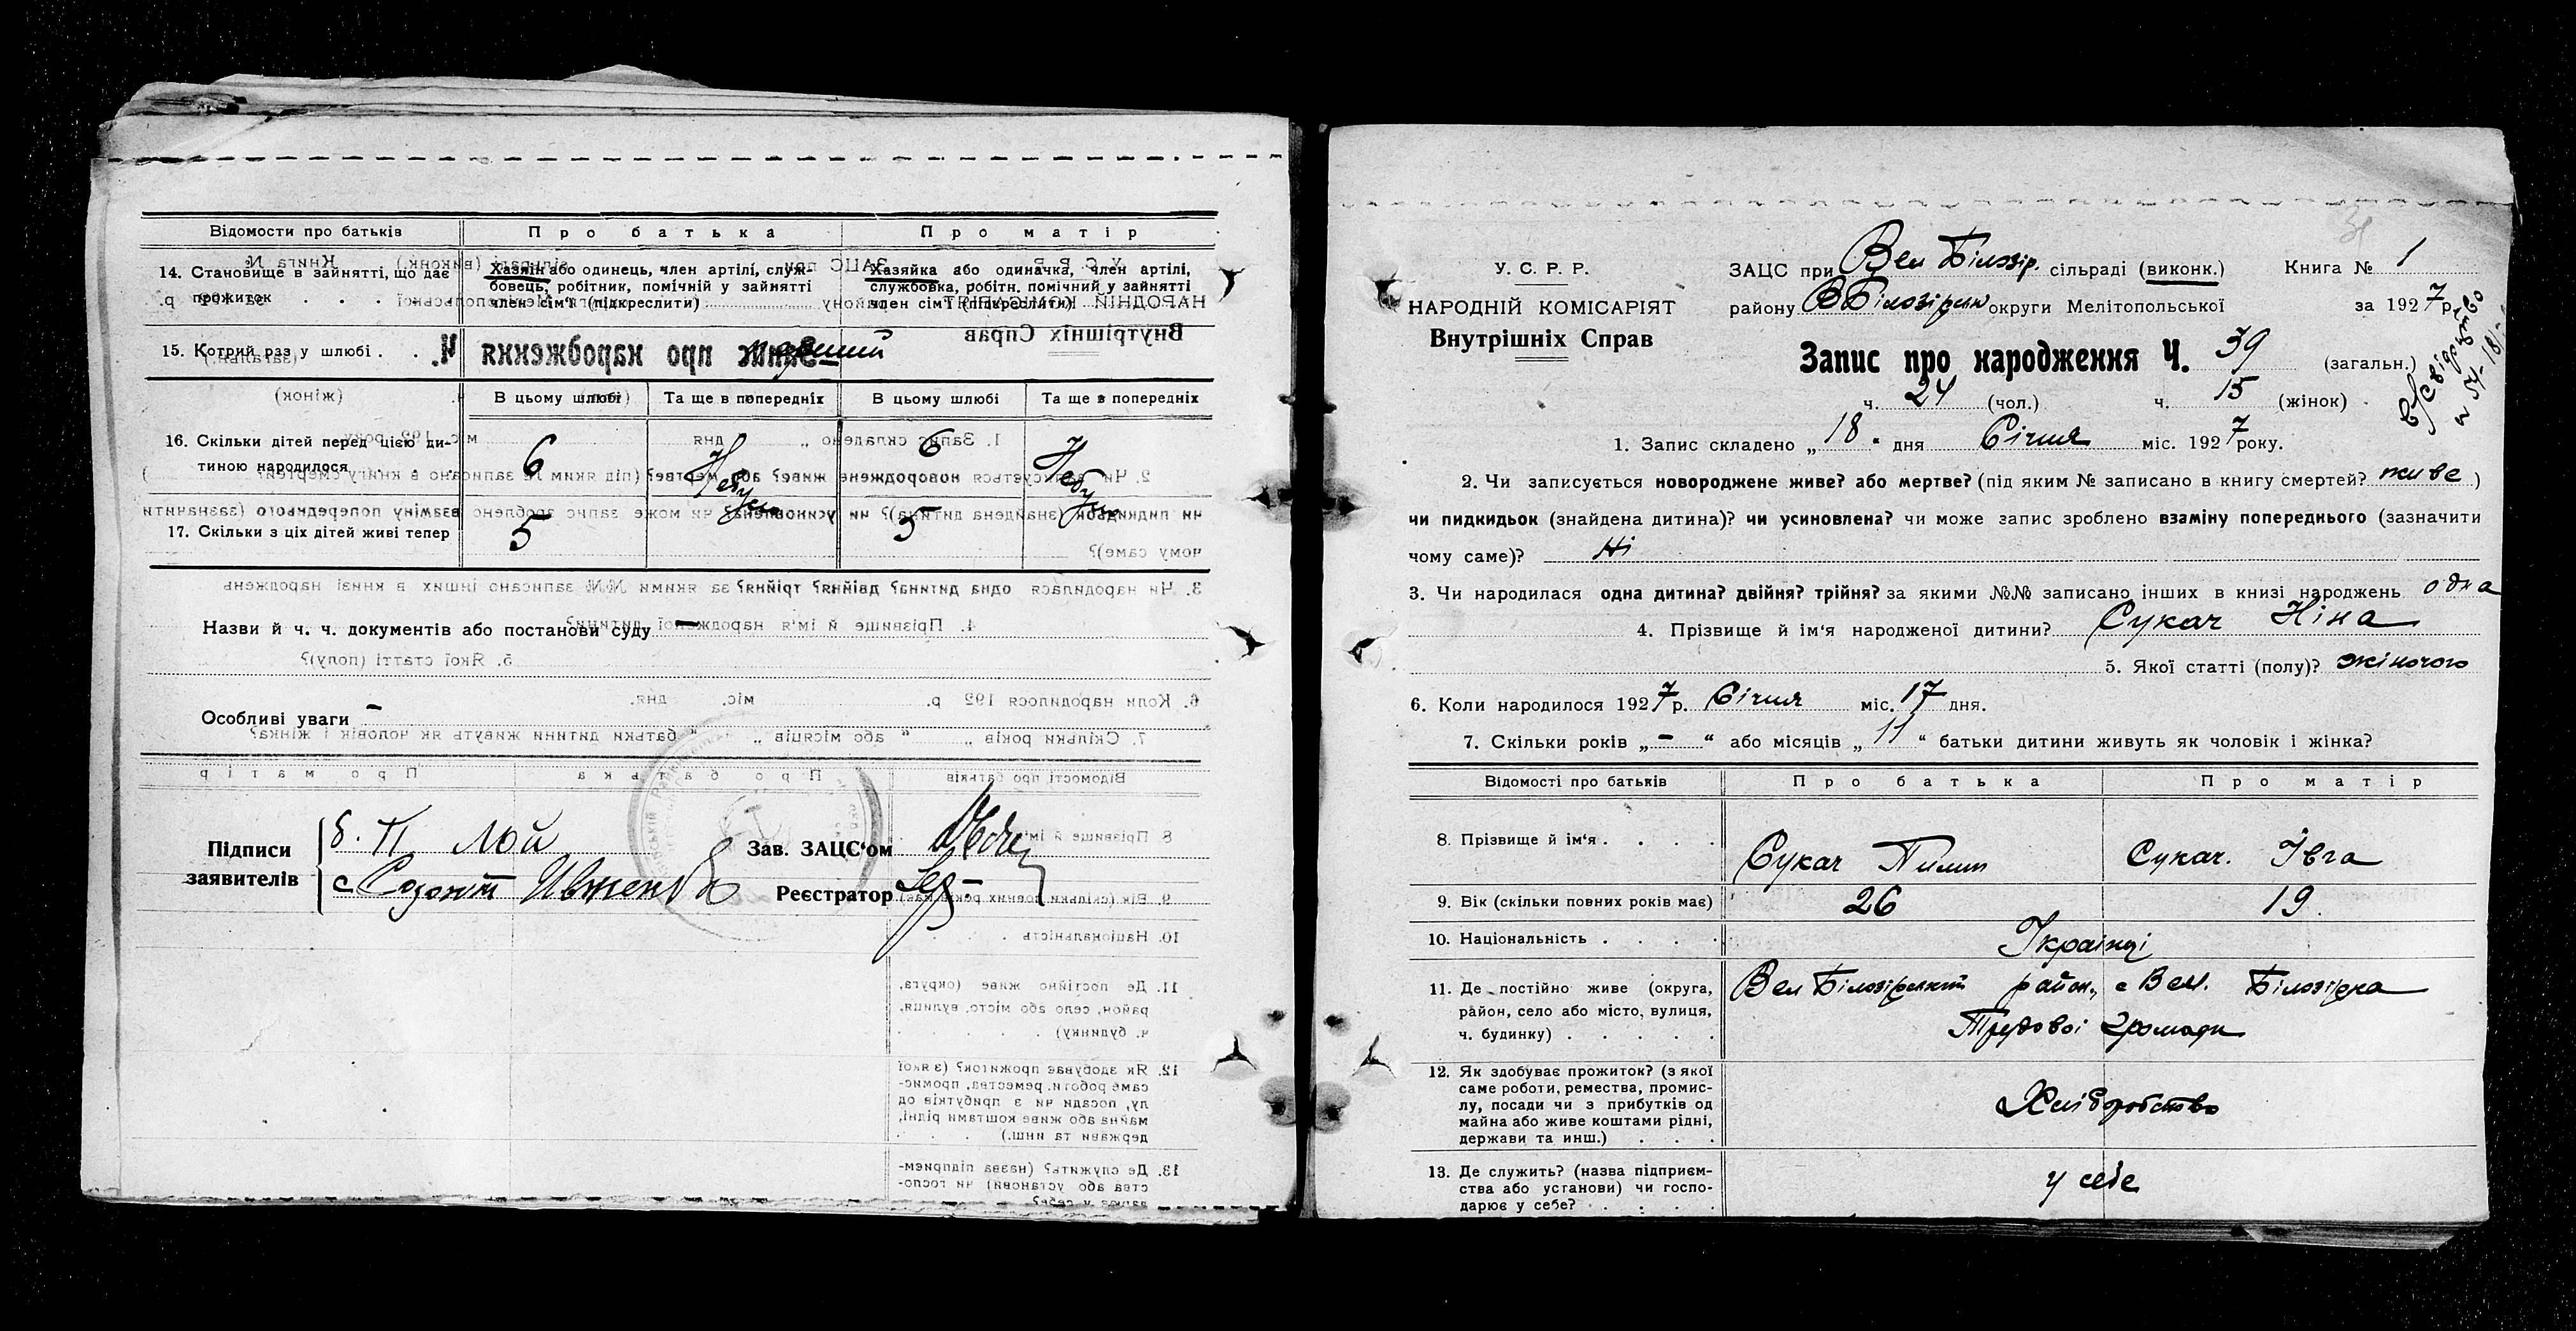 Відомости про батьків
Про батька
Про матір
14. Становище в зайнятті, що дає прожиток
Хазяїн або одинець, член артілі, служ-
бовець, робітник, помічній у зайнятті
член сім'ї (підкреслити)
Хазяйка або одиначка, член артілі,
службовка, робітн. помічний у зайнятті
член сім'ї (підкреслити)
15. Котрий раз у шлюбі . . .
перший
В цьому шлюбі
Та ще в попередніх
В цьому шлюбі
Та ще в попередніх
16. Скільки дітей перед цією ди-
тиною народилося
6
Не було
6
Не було
17. Скільки з ціх дітей живі тепер
5
5
Назви й ч. ч. документів або постанови суду —
Особливі уваги —
Підписи
заявителів
Лой
Зав. ЗАЦС'ом
Реєстратор
У. С. Р. Р.
НАРОДНІЙ КОМІСАРІЯТ
Внутрішніх Справ
ЗАЦС при Вел Білозір. сільраді (виконк.) Книга № 1
району ВБілозірск округи Мелітопольської за 1927 р.
Запис про народження Ч. 39 (загальн.)
ч. 24 (чол.) ч. 15 (жінок)
1. Запис складено „18“ дня Січня міс. 1927 року.
2. Чи записується новороджене живе? або мертве? (під яким № записано в книгу смертей? живе)
чи пидкидьок (знайдена дитина)? чи усиновлена? чи може запис зроблено взаміну попереднього (зазначити
чому саме)? Ні
3. Чи народилася одна дитина? двійня? трійня? за якими №№ записано інших в книзі народжень одна
4. Прізвище й ім'я народженої дитини? Сукач Ніна
5. Якої статті (полу)? жіночого
6. Коли народилося 1927 р. Січня міс. 17 дня.
7. Скільки років „—“ або місяців „11“ батьки дитини живуть як чоловік і жінка?
Відомості про батьків
Про батька
Про матір
8. Прізвище й ім'я . . . .
Сукач Пилип
Сукач. Івга
9. Вік (скільки повних років має)
26
19.
10. Національність . . . .
Українці
11. Де постійно живе (округа,
район, село або місто, вулиця,
ч. будинку) . . . . .
Вел Білозірський район, с Вел. Білозірка
Трудової громади
12. Як здобуває прожиток? (з якої
саме роботи, ремества, промис-
лу, посади чи з прибутків од
майна або живе коштами рідні,
держави та инш.) . . .
Хліборобство
13. Де служить? (назва підприєм-
ства або установи) чи госпо-
дарює у себе? . . . .
у себе